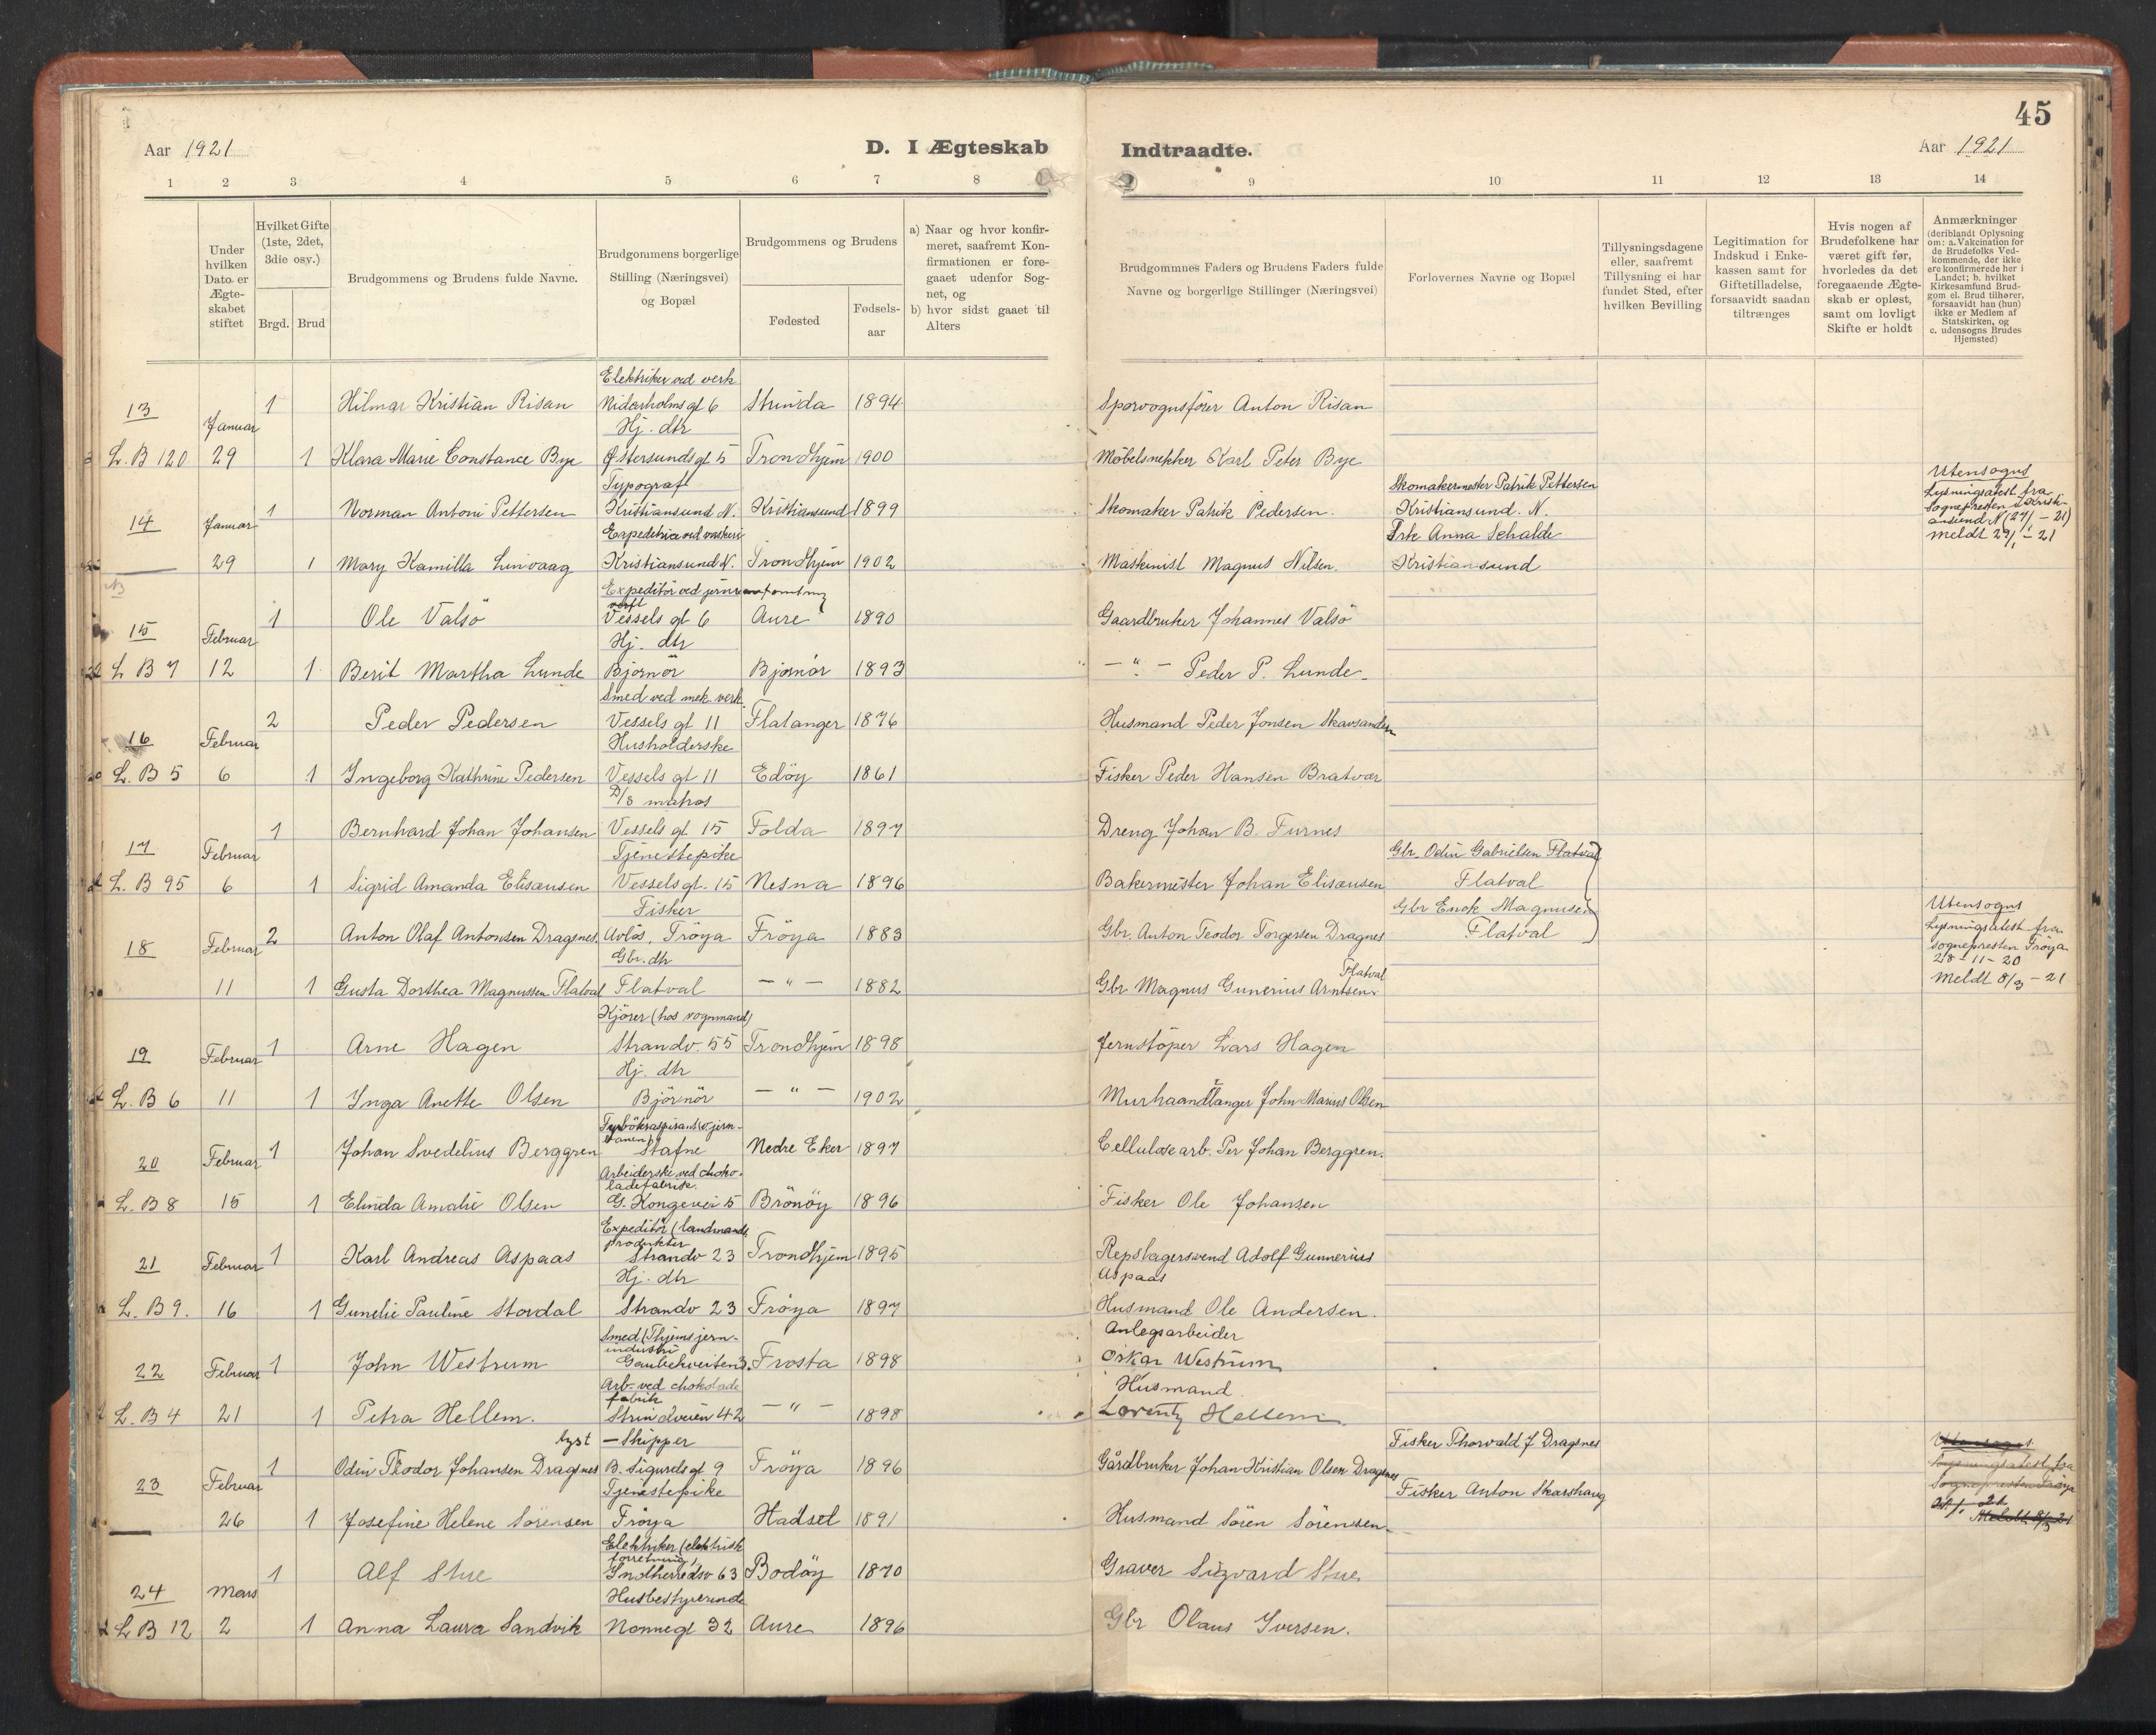 45
Aar 1921
D. I Ægteskab
Indtraadte.
Aar 1921
1 2 3 4 5 6 7 8
9 10 11 12 13 14
Under hvilken Dato er Ægteskabet stiftet
Hvilket Gifte (1ste, 2det, 3die osv.)
Brgd. Brud
Brudgommens og Brudens fulde Navne.
Brudgommens borgerlige Stilling (Næringsvei) og Bopæl
Brudgommens og Brudens
Fødested
Fødsels-aar
a) Naar og hvor konfir-
meret, saafremt Kon-
firmationen er fore-
gaaet udenfor Sog-
net, og
b) hvor sidst gaaet til
Alters
Brudgommnes Faders og Brudens Faders fulde
Navne og borgerlige Stillinger (Næringsvei)
Forlovernes Navne og Bopæl
Tillysningsdagene
eller, saafremt
Tillysning ei har
fundet Sted, efter
hvilken Bevilling
Legitimation for
Indskud i Enke-
kassen samt for
Giftetilladelse,
forsaavidt saadan
tiltrænges
Hvis nogen af
Brudefolkene har
været gift før,
hvorledes da det
foregaaende Ægte-
skab er opløst,
samt om lovligt
Skifte er holdt
Anmærkninger
(deriblandt Oplysning
om: a. Vakcination for
de Brudefolks Ved-
kommende, der ikke
ere konfirmerede her i
Landet; b. hvilket
Kirkesamfund Brud-
gom el. Brud tilhører,
forsaavidt han (hun)
ikke er Medlem af
Statskirken, og
c. udensogns Brudes
Hjemsted)
Elektriker ved verk
13 Januar 1 Hilmar Kristian Risan Nidarholms gt 6 Strinda 1894 Sporvognsfører Anton Risan
Hj. dtr
L. B 120 29 1 Klara Marie Constance Bye Østersunds gt 5 Trondhjem 1900 Møbelsnekker Karl Peter Bye
Typograf Skomakermester Patrik Pettersen
14 Januar 1 Norman Antoni Pettersen Kristiansund N. Kristiansund 1899 Skomaker Patrik Pedersen. Kristiansund. N.
Expeditrice ved vaskeri Frk Anna Schalde
29 1 Mary Kamilla Linvaag Kristiansund N. Trondhjem 1902 Maskinist Magnus Nilsen. Kristiansund
Utensogns
Lysningsatest fra
Sognepresten i Kristi-
ansund N (27/1 - 21)
meldt 29/1 - 21
Expeditör ved jern
15 Februar 1 Ole Valsö Vessels gt 6 Aure 1890 Gaardbruker Johannes Valsö
Hj. dtr
L B 7 12 1 Berit Martha Lunde Bjørnör Bjørnör 1893 — " — Peder P. Lunde
Smed ved mek. verk.
16 Februar 2 Peder Pedersen Vessels gt 11 Flatanger 1876 Husmand Peder Jonsen Skavsanden
Husholderske
L. B 5 6 1 Ingeborg Kathrine Pedersen Vessels gt 11 Edöy 1861 Fisker Peder Hansen Bratvær
D/S matros
17 Februar 1 Bernhard Johan Johansen Vessels gt 15 Folda 1897 Dreng Johan B. Furnes
Tjenestepike Gbr. Odin Gabrielsen Flatval
L. B 95 6 1 Sigrid Amanda Elisæusen Vessels gt. 15 Nesna 1896 Bakermester Johan Elisæusen Flatval
Fisker Gbr Enok Magnusen
18 Februar 2 Anton Olaf Antonsen Dragsnes. Avløs, Fröya Fröya 1883 Gbr. Anton Teodor Torgersen Dragnes Flatval
Gbr. dtr
11 1 Gusta Dorthea Magnussen Flatval Flatval — " — 1882 Gbr Magnus Gunerius Arntsen Flatval
Utensogns
Lysningsatest fra
Sognepresten Fröya
28-11-20
Meldt 8/3 - 21
Kjører (hos vognmand)
19 Februar 1 Arne Hagen Strandv. 55 Trondhjem 1898 Jernstöper Lars Hagen
Hj. dtr
L. B 6 11 1 Inga Anette Olsen Björnör — " — 1902 Murhaandtlanger John Marius Olsen
20 Februar 1 Johan Svedelius Berggren Stafne Nedre Eker 1897 Cellulosearb. Per Johan Berggren.
Arbeiderske ved choko-
ladefabrik.
L. B 8 15 1 Elinda Amalie Olsen G. Kongevei 5 Brönöy 1896 Fisker Ole Johansen
Expeditör (landmands
produkter
21 Februar 1 Karl Andreas Aspaas Strandv 23 Trondhjem 1895 Repslagersvend Adolf Gunnerius
Aspaas
Hj. dtr
L. B 9. 16 1 Gunelie Pauline Stordal Strandv 23 Fröya 1897 Husmand Ole Andersen.
Smed (Thjems jern-
industri Anlegsarbeider
22 Februar 1 John Westrum Gaubekveiten 3. Frosta 1898 Oskar Westrum
Arb. ved chokolade
fabrik Husmand
L. B 4 21 1 Petra Hellem. Strindveien 42 — " — 1898 Lorentz Hellem.
lyst — Skipper Fisker Thorvald J Dragsnes
23 Februar 1 Odin Teodor Johansen Dragsnes B. Sigurds gt 9 Fröya 1896 Gårdbruker Johan Kristian Olsen Dragsnes
Tjenestepike Fisker Anton Skarshaug
26 1 Josefine Helene Sörensen Fröya Hadsel 1891 Husmand Sören Sörensen
Utensogns
Lysningsatest fra
Sognepresten Fröya
Meldt 8/3 21
Elektriker (elektrisk
forretning)
24 Mars 1 Alf Stue Indherredsv 63 Bodöy 1870 Graver Sigvard Stue
Husbestyrerinde
L B 12 2 1 Anna Laura Sandvik Nonnegt 32 Aure 1896 Gbr Olaus Iversen.